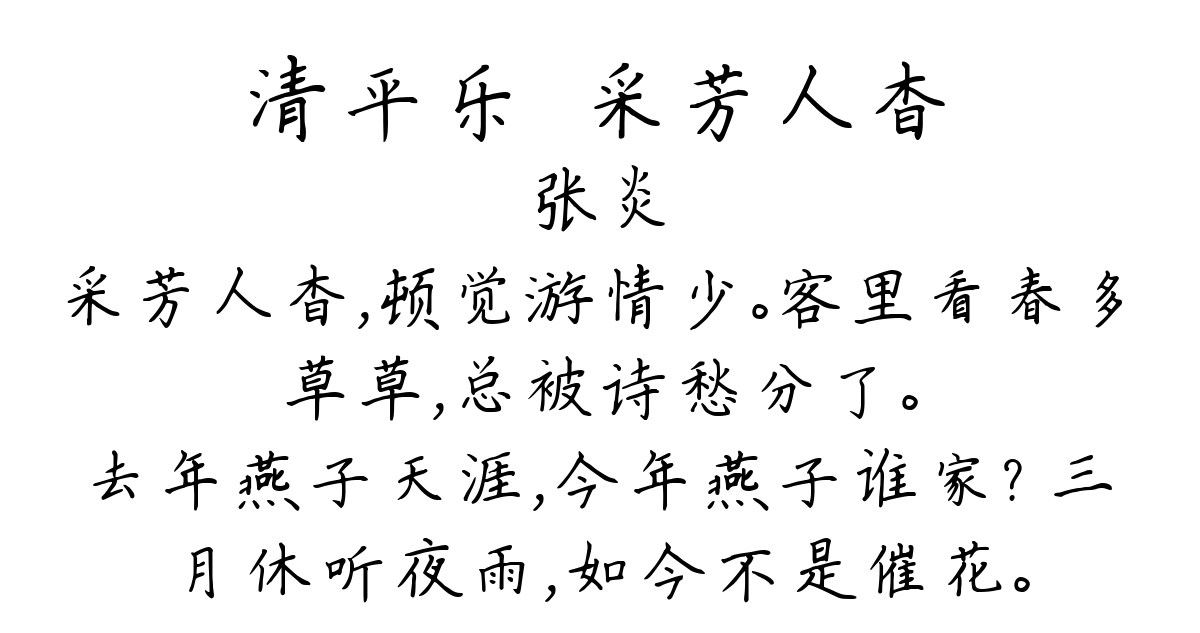 清平乐 采芳人杳
张炎
采芳人杳,顿觉游情少。客里看春多
草草,总被诗愁分了。
去年燕子天涯,今年燕子谁家?三
月休听夜雨,如今不是催花。